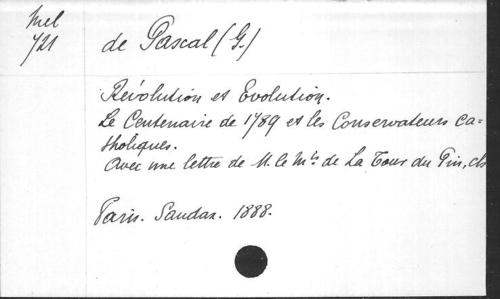 Mel
721
de Pascal (G.)
Révolution et Evolution.
Le Centenaire de 1789 et les Conservateurs ca=
tholiques.
Avec une lettre de M. le Mis de La Tour du Pin,
Paris. Saudax. 1888.